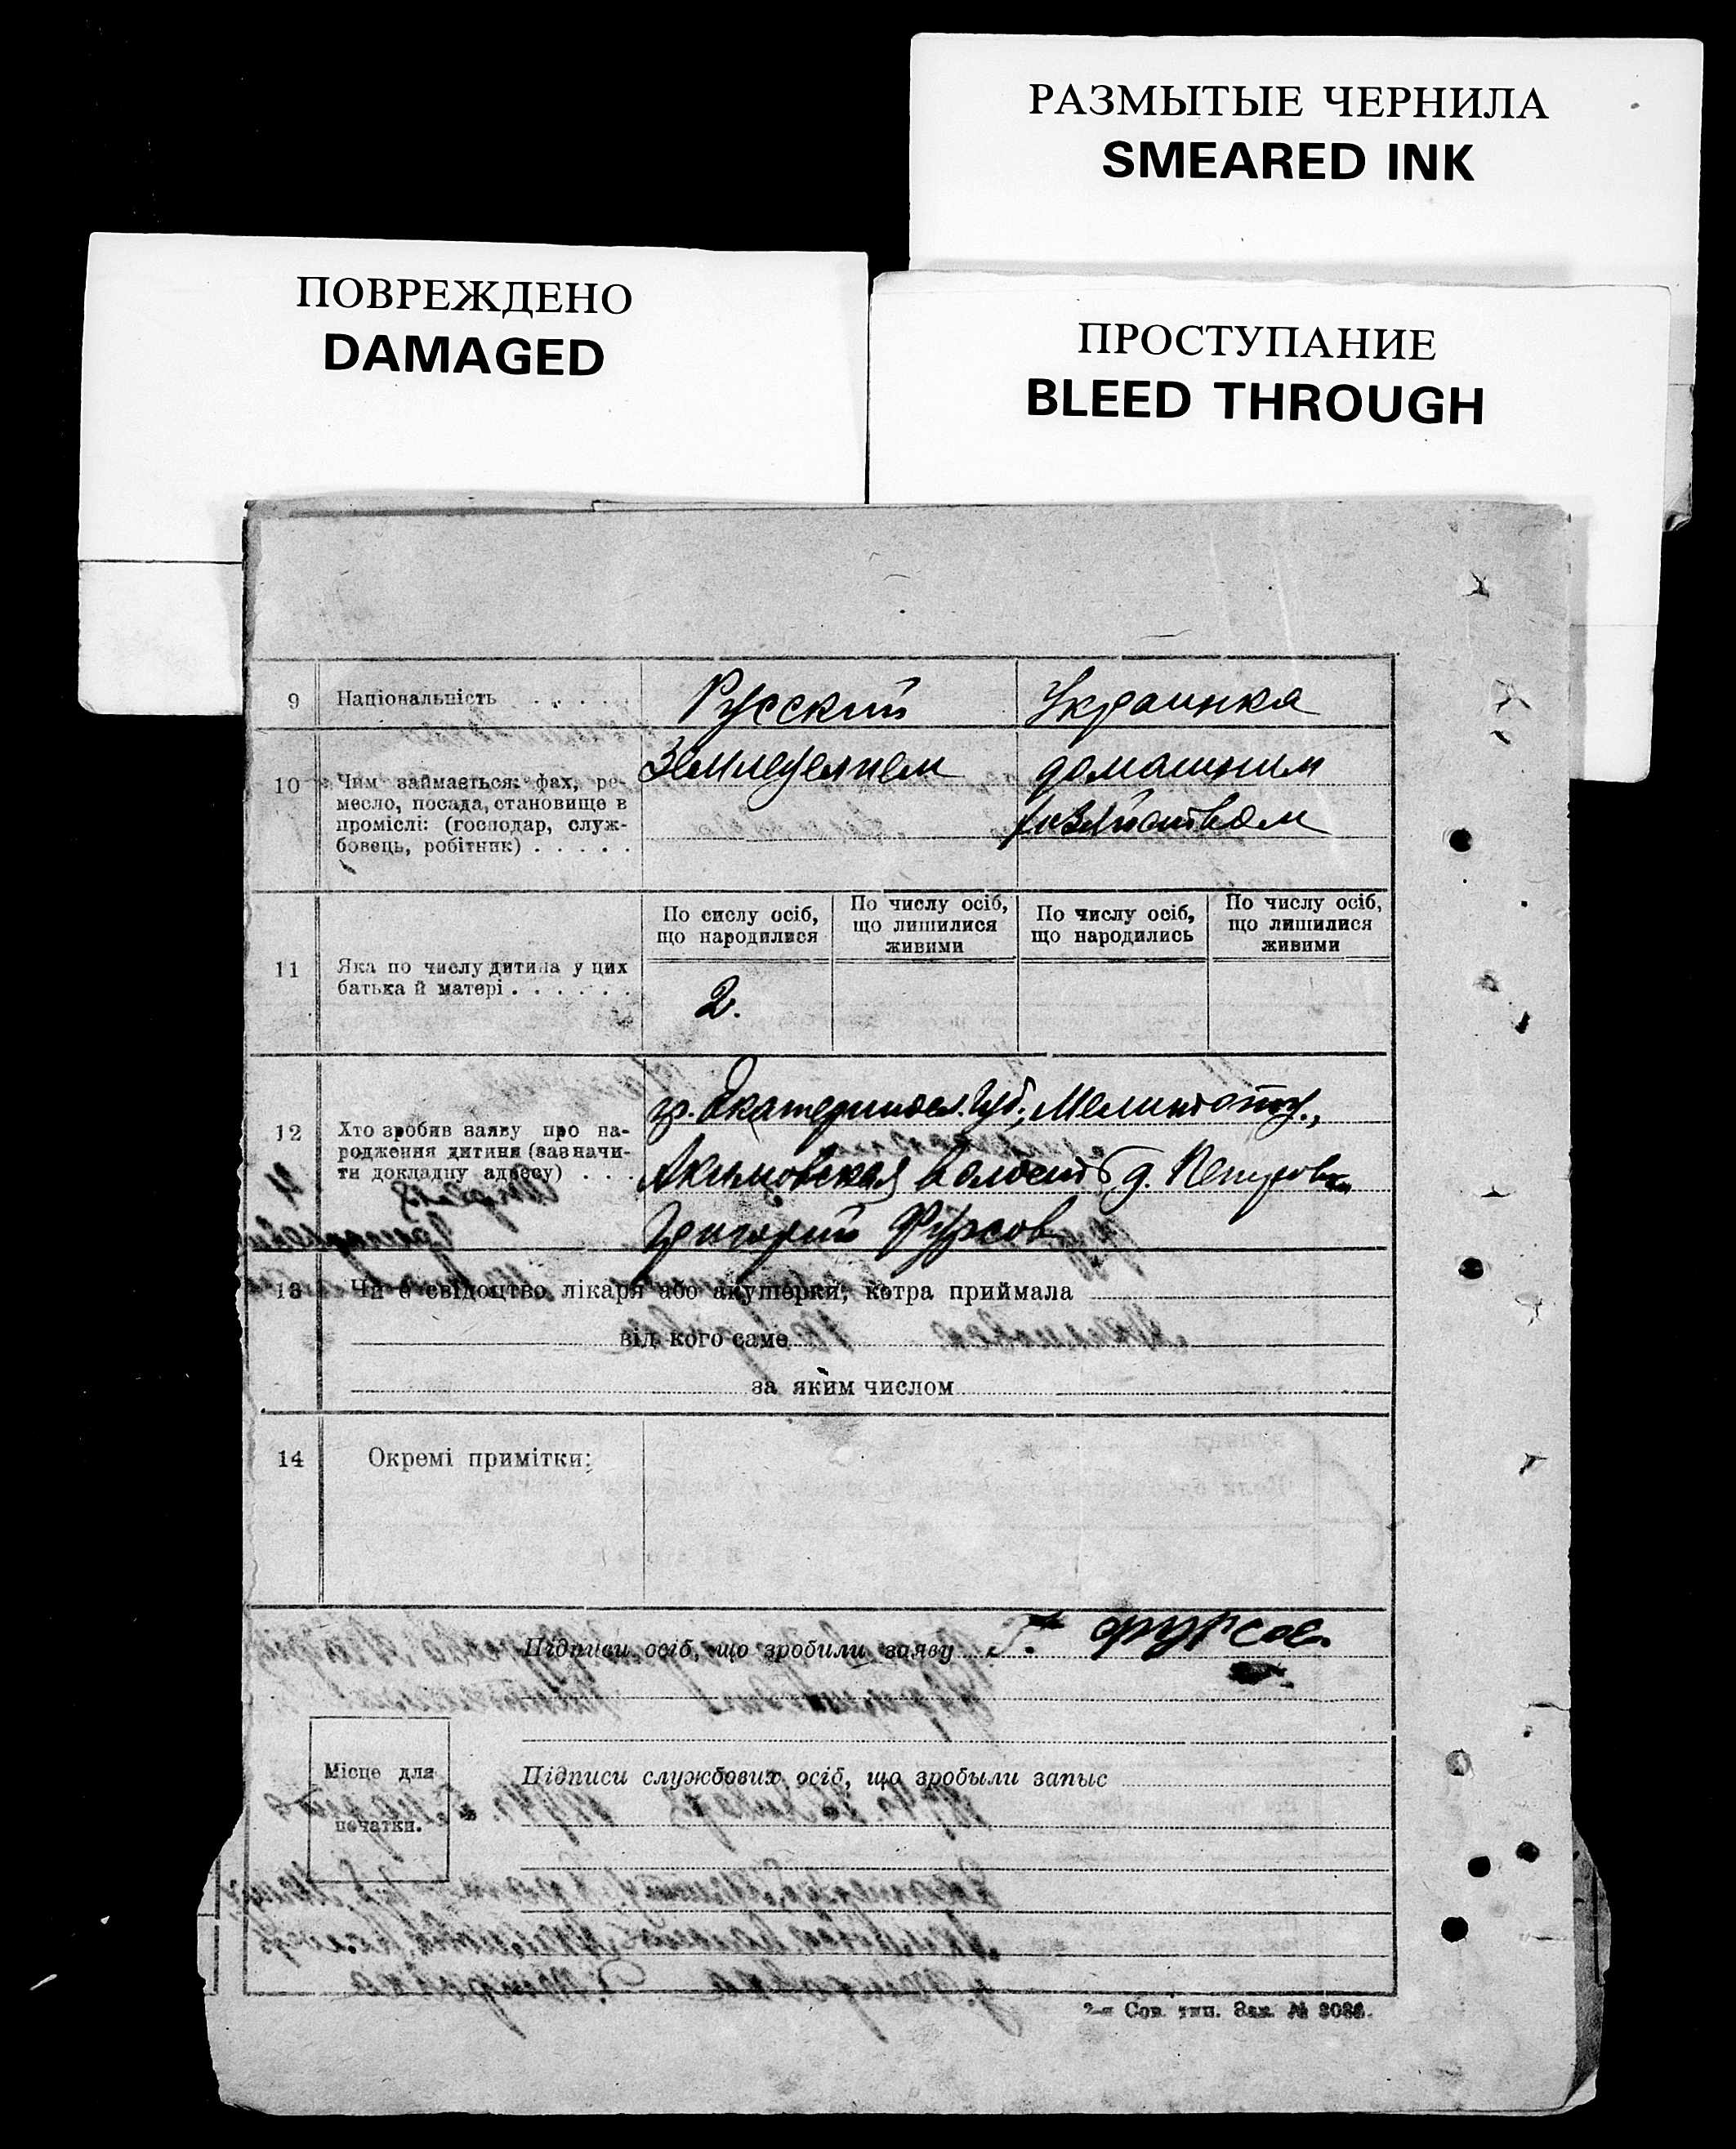 РАЗМЫТЫЕ ЧЕРНИЛА
SMEARED INK
ПОВРЕЖДЕНО
DAMAGED
ПРОСТУПАНИЕ
BLEED THROUGH
9 Національність . . . . . Русский Украинка
10 Чим займається: фах, ре-
месло, посада, становище в
проміслі: (господар, служ-
бовець, робітник) . . . . .
Земледелием
домашним
хозяйством
11 Яка по числу дитина у цих
батька й матері . . . . . .
По сислу осіб,
що народилися
По числу осіб,
що лишилися
живими
По числу осіб,
що народились
По числу осіб,
що лишилися
живими
2.
12 Хто зробив заяву про на-
родження дитини (зазначи-
ти докладну адресу) . . .
гр. Екатеринос. Губ.,
Акимовская Волость д.
Григорий Фурсов
13 Чи є свідоцтво лікаря або акушерки, котра приймала
від кого саме
за яким числом
14 Окремі примітки:
Підписи осіб, що зробили заяву Г. Фурсов
Місце для
печатки.
Підписи службових осіб, що зробыли запыс
2-я Сов. тип. Зак. № 3086.